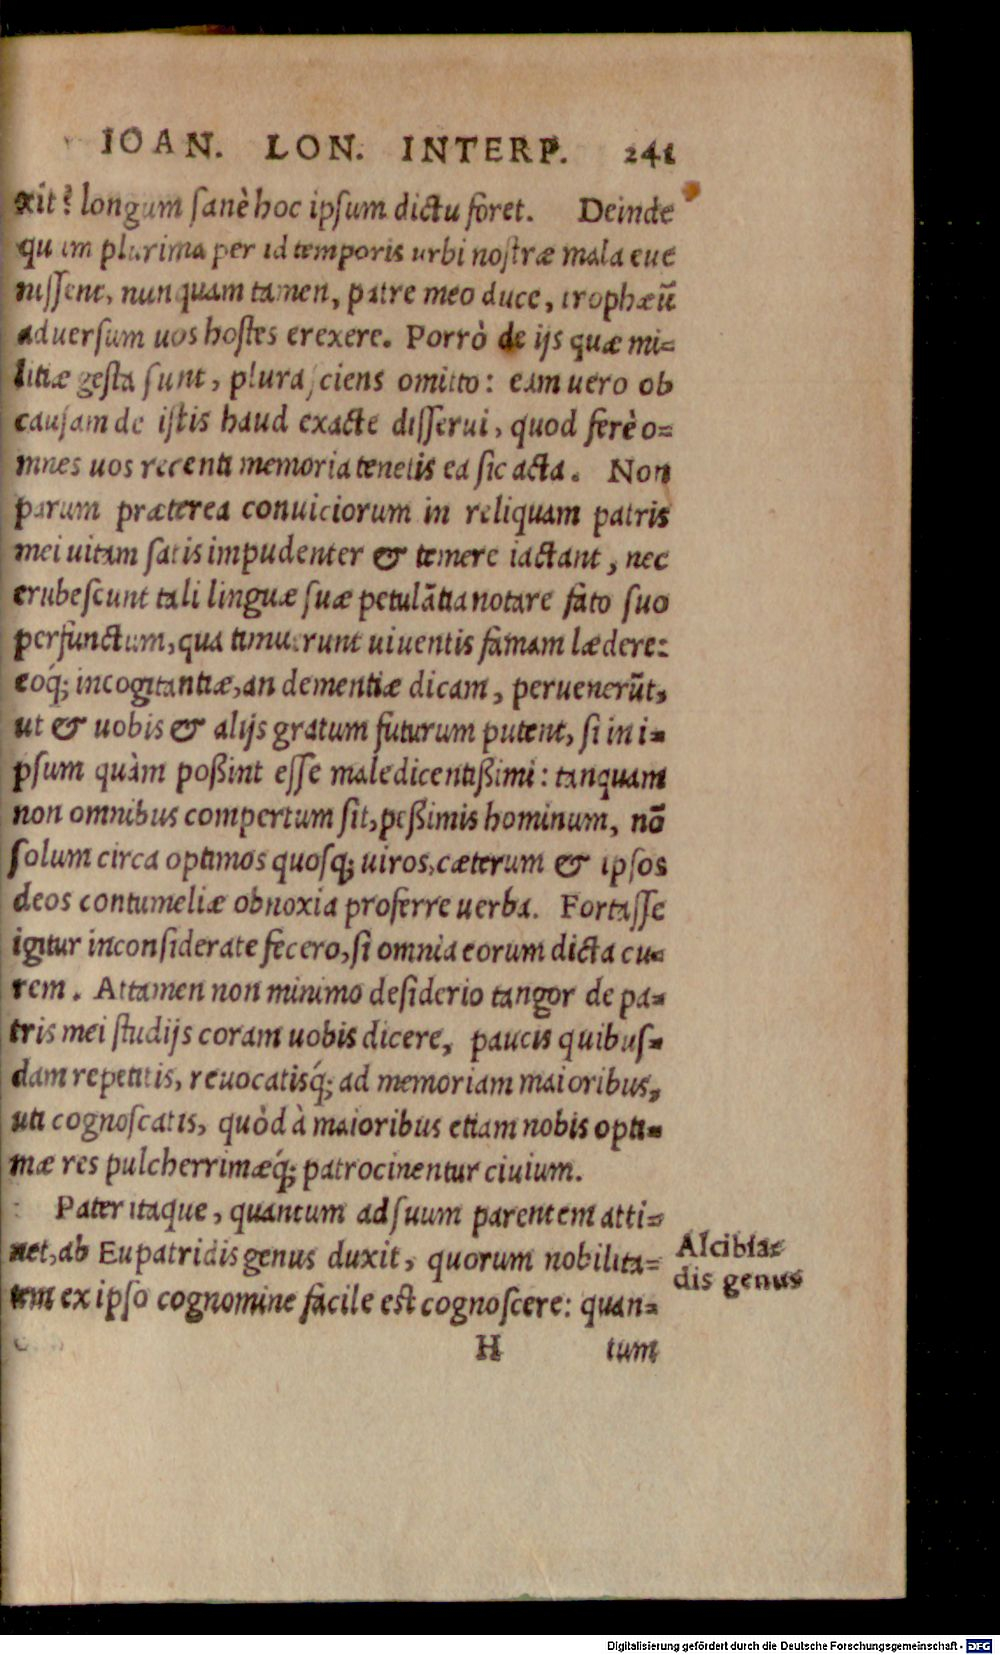 IOAN. LON. INTERP. 241
xit? longum sanè hoc ipsum dictu foret. Deinde
quum plurima per id temporis urbi nostræ mala eue
nissent, nunquam tamen, patre meo duce, trophæū
aduersum uos hostes erexere. Porrò de ijs quæ mi-
litiæ gesta sunt, plura sciens omitto: eam uero ob
causam de istis haud exacte disserui, quod ferè o-
mnes uos recenti memoria tenetis ea sic acta. Non
parum præterea conuiciorum in reliquam patris
mei uitam satis impudenter & temere iactant, nec
erubescunt tali linguæ suæ petulātia notare fato suo
perfunctum, qua timuerunt uiuentis famam lædere:
eoq́; incogitantiæ, an dementiæ dicam, peruenerūt,
ut & uobis & alijs gratum futurum putent, si in i-
psum quàm poßint esse maledicentißimi: tanquam
non omnibus compertum sit, peßimis hominum, nō
solum circa optimos quosq; uiros, cæterum & ipsos
deos contumeliæ obnoxia proferre uerba. Fortasse
igitur inconsiderate fecero, si omnia eorum dicta cu-
rem. Attamen non minimo desiderio tangor de pa-
tris mei studijs coram uobis dicere, paucis quibus-
dam repetitis, reuocatisq́; ad memoriam maioribus,
uti cognoscatis, quòd à maioribus etiam nobis opti-
mæ res pulcherrimæq́; patrocinentur ciuium.
Pater itaque, quantum ad suum parentem atti-
net, ab Eupatridis genus duxit, quorum nobilita-
tem ex ipso cognomine facile est cognoscere: quan-
Alcibia-
dis genus
H tum
Digitalisierung gefördert durch die Deutsche Forschungsgemeinschaft - DFG